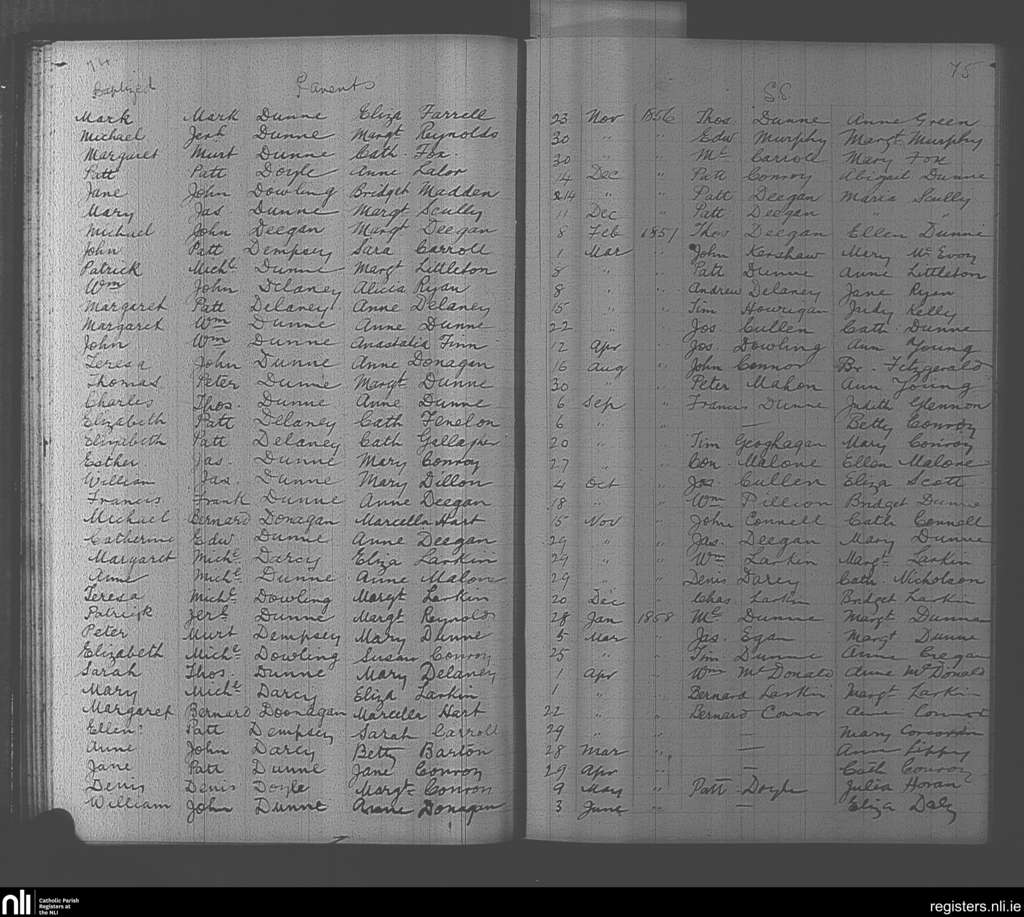 74 75
Baptized Parents SS
Mark Mark Dunne Eliza Farrell 23 Nov 1856 Thos. Dunne Anne Green
Michael Jerh Dunne Margt Reynolds 30 " " Edw Murphy Margt Murphy
Margaret Murt Dunne Cath. Fox. 30 " " Ml Carroll Mary Fox
Patt Patt Doyle Anne Lalor 14 Dec " Patt Conroy Abigail Dunne
Jane John Dowling Bridget Madden 14 " " Patt Deegan Maria Scully
Mary Jas Dunne Margt Scully 11 Dec " Patt Deegan " "
Michael John Deegan Margt Deegan 8 Feb 1857 Thos Deegan Ellen Dunne
John Patt Dempsey Sara Carroll 1 Mar " John Kershaw Mary McEvoy
Patrick Michl Dunne Margt Littleton 8 " " Patt Dunne Anne Littleton
Wm John Delaney Alicia Ryan 8 " " Andrew Delaney Jane Ryan
Margaret Patt Delaney Anne Delaney 15 " " Tim Hourigan Judy Kelly
Margaret Wm Dunne Anne Dunne 22 " " Jos Cullen Cath Dunne
John Wm Dunne Anastatia Finn 12 Apr " Jos. Dowling Ann Young
Teresa John Dunne Anne Donagan 16 Aug " John Connor Br. Fitzgerald
Thomas Peter Dunne Margt Dunne 30 " " Peter Mahon Ann Young
Charles Thos. Dunne Anne Dunne 6 Sep " Francis Dunne Judith Glennon
Elizabeth Patt Delaney Cath Fenelon 6 " " — Betty Conroy
Elizabeth Patt Delaney Cath Gallagher 20 " " Tim Geoghagan Mary Conroy
Esther Jas. Dunne Mary Conroy 27 " " Con. Malone Ellen Malone
William Jas. Dunne Mary Dillon 4 Oct " Jas. Cullen Eliza Scott
Francis Frank Dunne Anne Deegan 18 " " Wm Pillion Bridget Dunne
Michael Bernard Donagan Marcella Hart 15 Nov " John Connell Cath Connell
Catherine Edw Dunne Anne Deegan 29 " " Jas. Deegan Mary Dunne
Margaret Michl Darcy Eliza Larkin 29 " " Wm Larkin Margt Larkin
Anne Michl Dunne Anne Malone 29 " " Denis Darcy Cath. Nicholson
Teresa Michl Dowling Margt Larkin 20 Dec " Chas. Larkin Bridget Larkin
Patrick Jerh Dunne Margt Reynolds 28 Jan 1858 Ml Dunne Margt Dunne
Peter Murt Dempsey Mary Dunne 5 Mar " Jas. Egan Margt Dunne
Elizabeth Michl Dowling Susan Conroy 25 " " Tim Dunne Anne Cregan
Sarah Thos. Dunne Mary Delaney 1 Apr " Wm McDonald Anne McDonald
Mary Michl Darcy Eliza Larkin 1 " " Bernard Larkin Margt Larkin
Margaret Bernard Doonagan Marcella Hart 22 " " Bernard Connor Ann Connor
Ellen Patt Dempsey Sarah Carroll 29 " " — Mary Corcoran
Anne John Darcy Betty Barton 28 Mar " — Ann Lippy
Jane Patt Dunne Jane Conroy 29 Apr " — Cath Conroy
Denis Denis Doyle Margt Conron 9 May " Patt Doyle Julia Horan
William John Dunne Anne Donagan 3 June " — Eliza Daly
nli Catholic Parish Registers at the NLI
registers.nli.ie